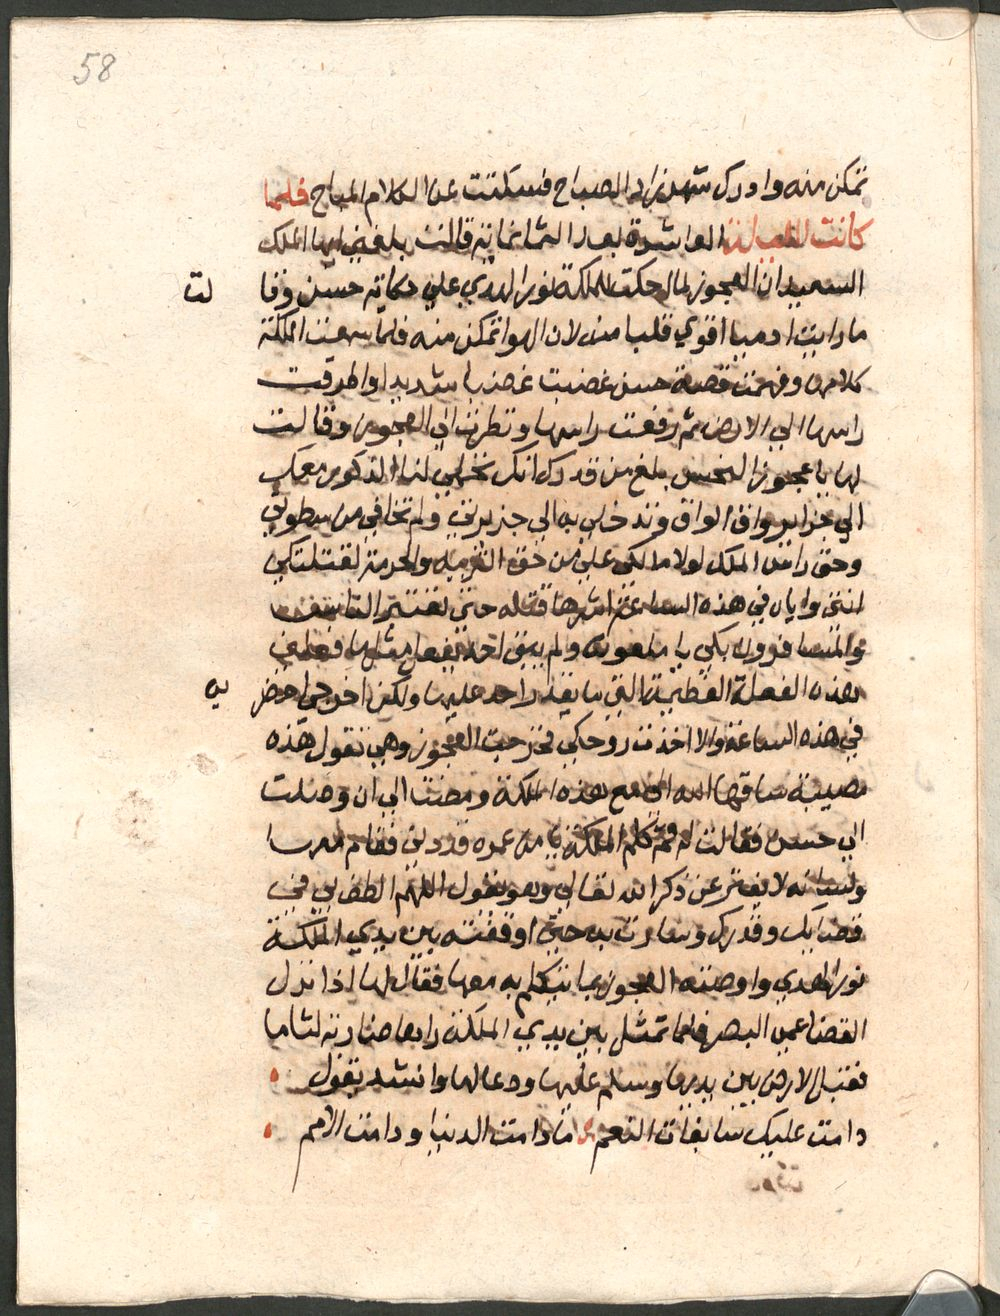 58
تمكن منه وادرك شهرزاد الصباح فسكتت عن الكلام المباح فلما
كانت الليلة العاشرة بعد الثمانماية قالت بلغني ايها الملك
السعيد ان العجوز لما حكت للملكة نور الهدي علي حكاية حسن وقا
لت
ما رايت ادميا اقوي قلبا منه لان الهوا تمكن منه فلما سمعت الملكة
كلامها وفهمت قصة حسن غضبت غضبا شديدا واطرقت
راسها الي الارض ثم رفعت راسها ونظرت الي العجوز وقالت
لها يا عجوز النحس بلغ من قدرك انك تحملي لنا الذكور معك
الي جزاير واق الواق وتدخلي به الي جزيرتي ولم تخافي من سطوتي
وحق راس الملك لولا ما لكي علي من حق التربيه والحرمة لقتلتكي
انتي واياه في هذه الساعة اشر قتله حتي تعتبر
المسافرون بكي يا ملعونه ولم يبقي احد يفعل مثل ما فعلتي
هذه الفعلة التي ما يقدر احد عليها ولكن اخرجي احضر
يه
في هذه الساعة والا اخذت روحكي فخرجت العجوز وهي تقول هذه
مصيبة ساقها الله الي مع هذه الملكة ومضت الي ان وصلت
الي حسن فقالت له قم كلم الملكة يا من عمره قد دني فقام معها
ولسانه لا يفتر عن ذكر الله تعالي وهو يقول اللهم الطف بي في
قضايك وقدرك وسارت به حتي اوقفته بين يدي الملكة
نور الهدي واوصته العجوز بما يتكلم به معها فقال لها اذا نزل
القضا عمي البصر فلما تمثل بين يدي الملكة راها ضاربة لثاما
فقبل الارض بين يديها وسلم عليها ودعا لها وانشد يقول
دامت عليك سابغات النعم ما دامت الدنيا ودامت الامم